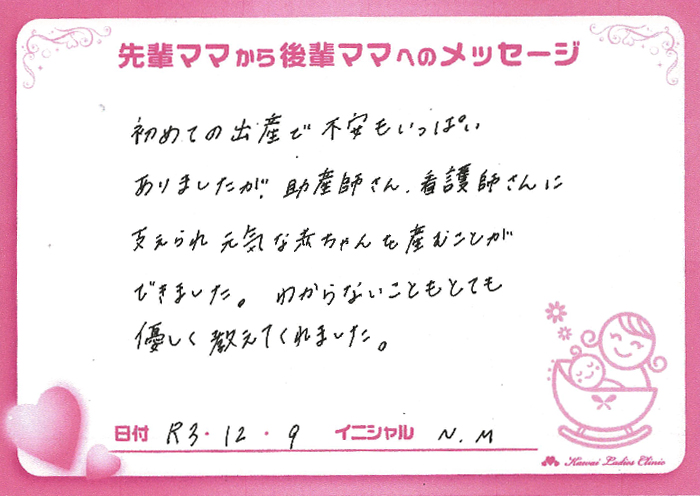 先輩ママから後輩ママへのメッセージ
初めての出産で不安もいっぱい
ありましたが、助産師さん、看護師さんに
支えられ元気な赤ちゃんを産むことが
できました。わからないこともとても
優しく教えてくれました。
日付 R3・12・9 イニシャル N.M
Kawai Ladies Clinic